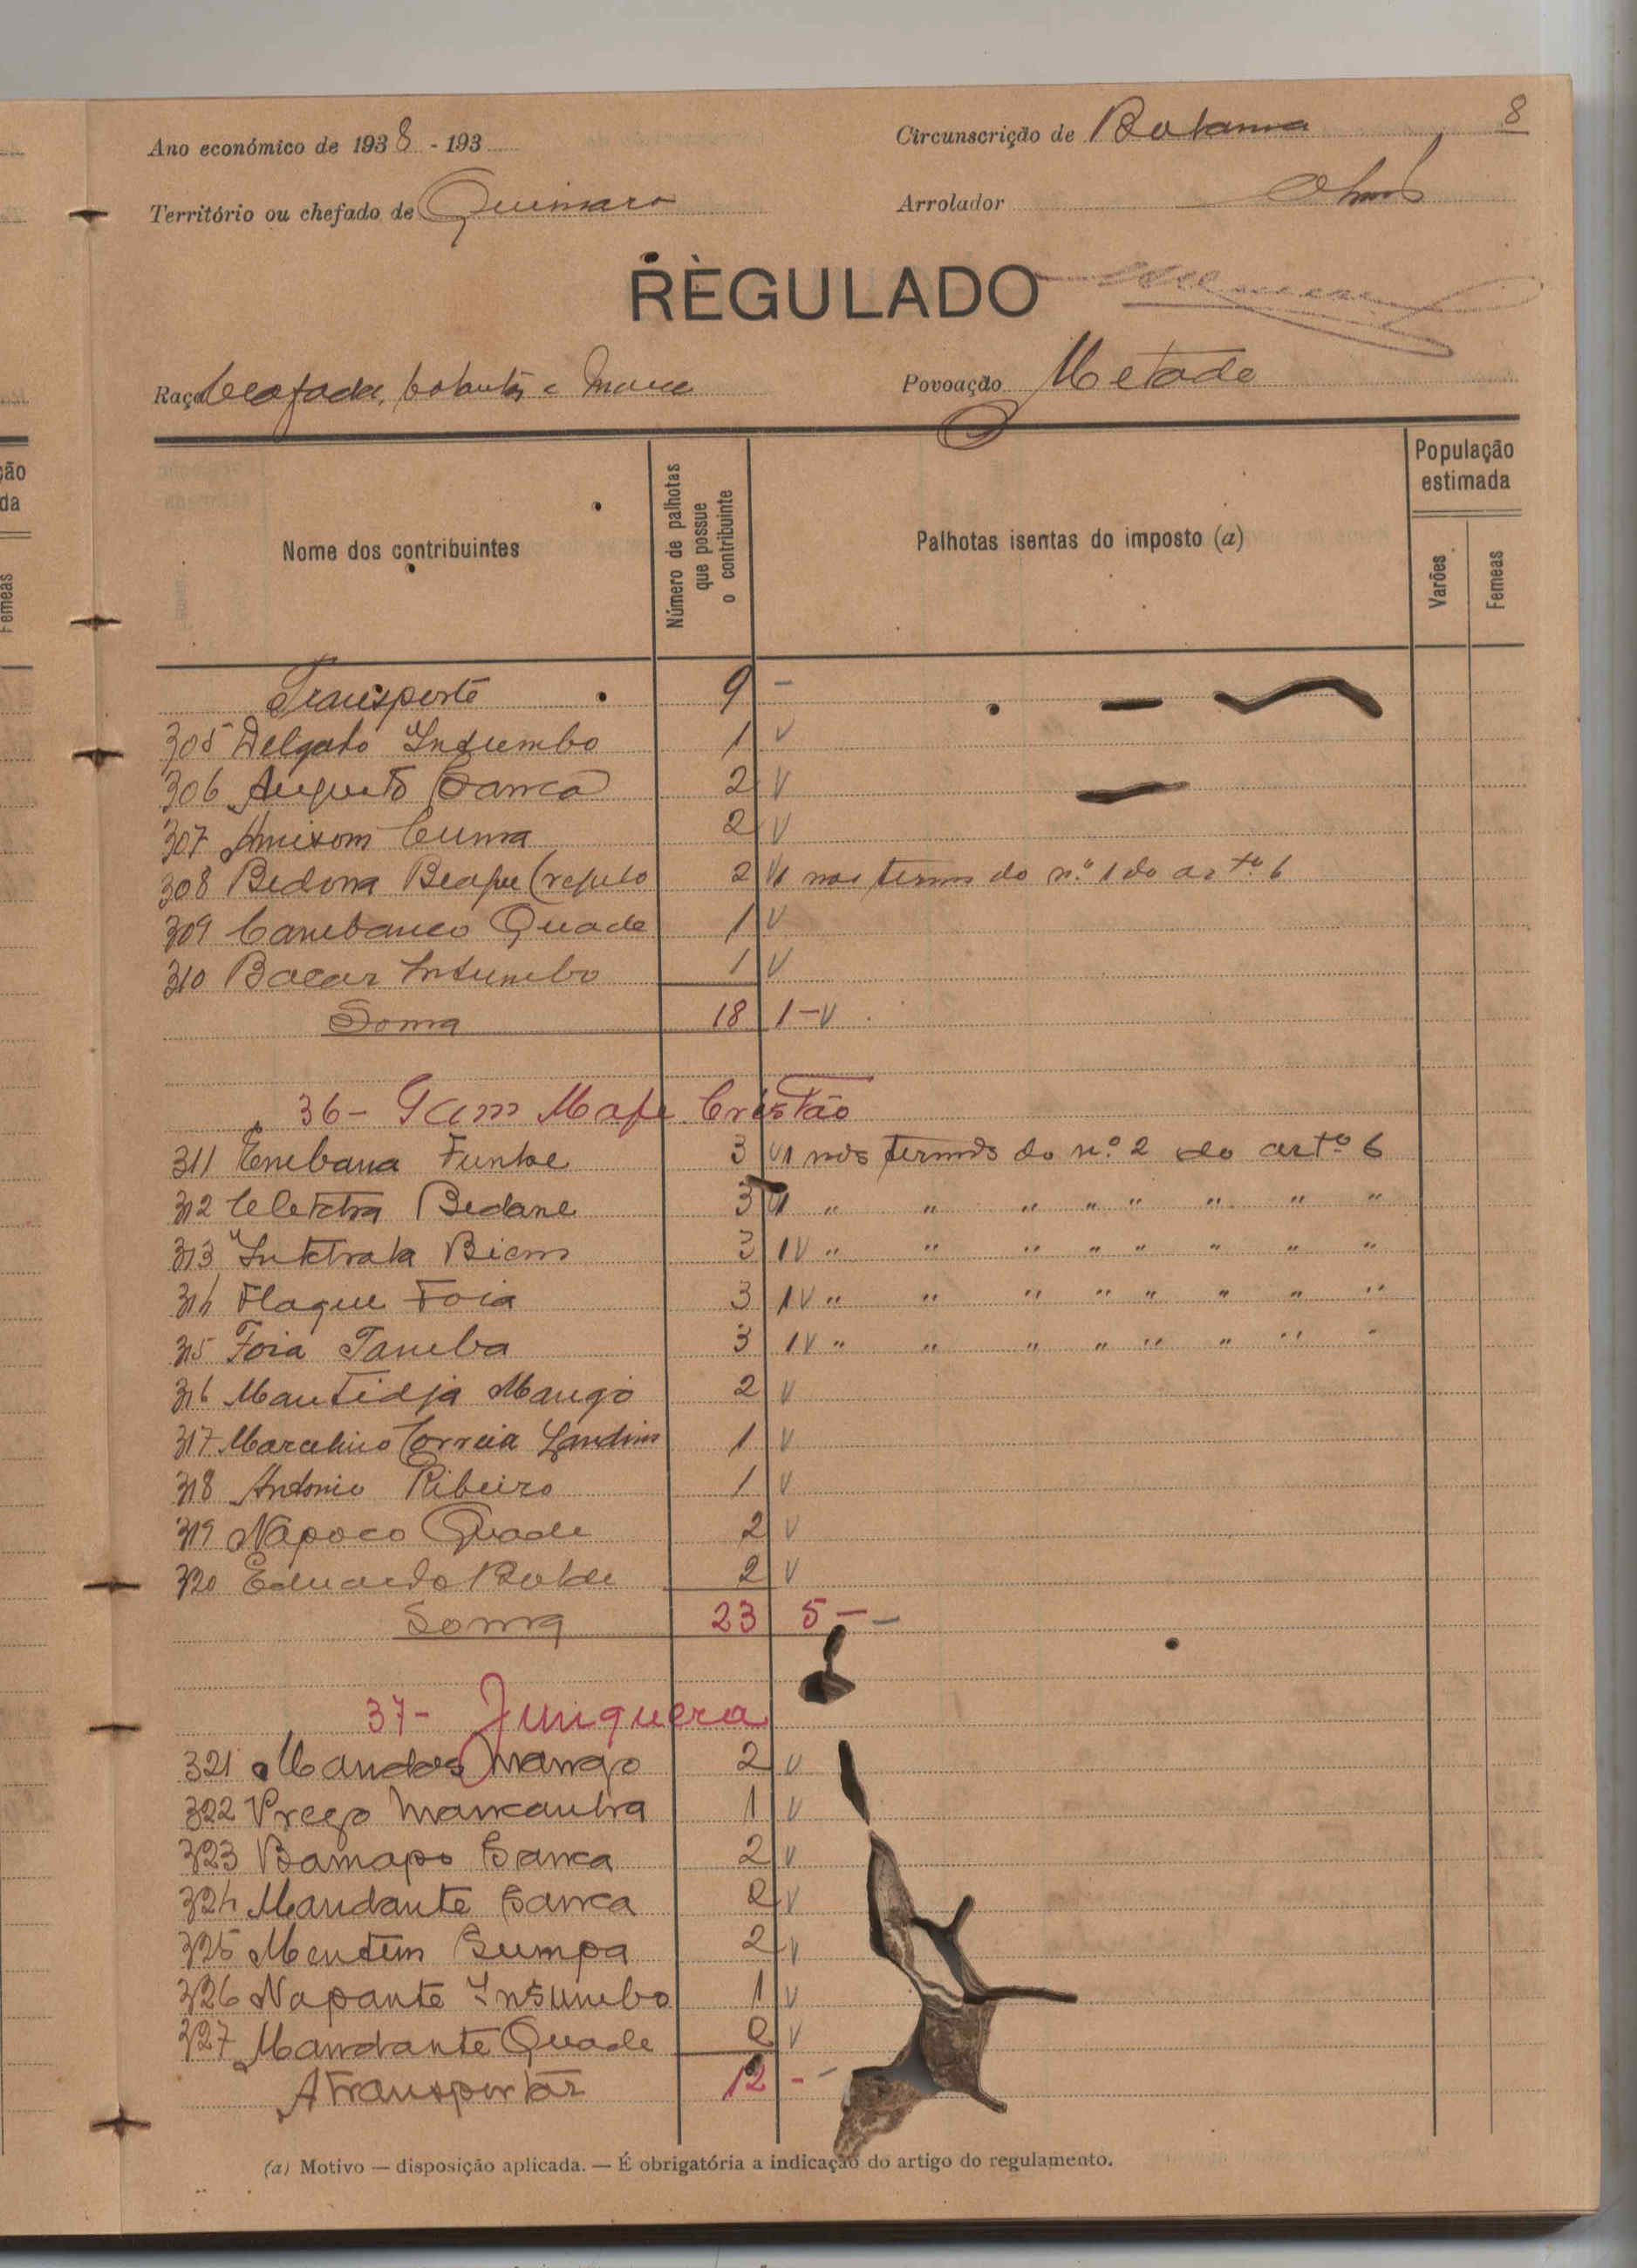 8
Ano económico de 1938 - 193
Circunscrição de Bolama
Território ou chefado de Quinara
Arrolador
REGULADO
Raça Beafada,
Povoação Metade
Nome dos contribuintes
Número de palhotas que possue o contribuinte
Palhotas isentas do imposto (a)
População estimada
Varões
Femeas
Transporte 9 -
305 Delgado Insumbo 1 V
306 Augusto Sanca 2 V
307 Cuma 2 V
308 Bedona Beafre 2 V1 nos termos do n.º 1 do artº 6
309 Quade 1 V
310 Bacar Insumbo 1 V
Soma 18 1-V
36- Gam Mafe Cristão
311 Funke 3 V1 nos termos do n.º 2 do artº 6
312 Bedane 3 V1 " " " " " " " "
313 3 1V " " " " " " " "
314 Flaque Foia 3 1V " " " " " " " "
315 Foia Tamba 3 1V " " " " " " " "
316 Mantidja Mango 2 V
317 Marcelino Correia Landim 1 V
318 Antonio Ribeiro 1 V
319 Napoco Quade 2 V
320 Eduardo 2 V
Soma 23 5 - -
37- Junquera
321 Mango 2 V
322 Prego 1 V
323 Bamapo Sanca 2 V
324 Mandante Sanca 2 V
325 Mentem Sumpa 2 V
326 Napante Insumbo 1 V
327 Mandante Quade 2 V
A transportar 12 - -
(a) Motivo — disposição aplicada. — É obrigatória a indicação do artigo do regulamento.